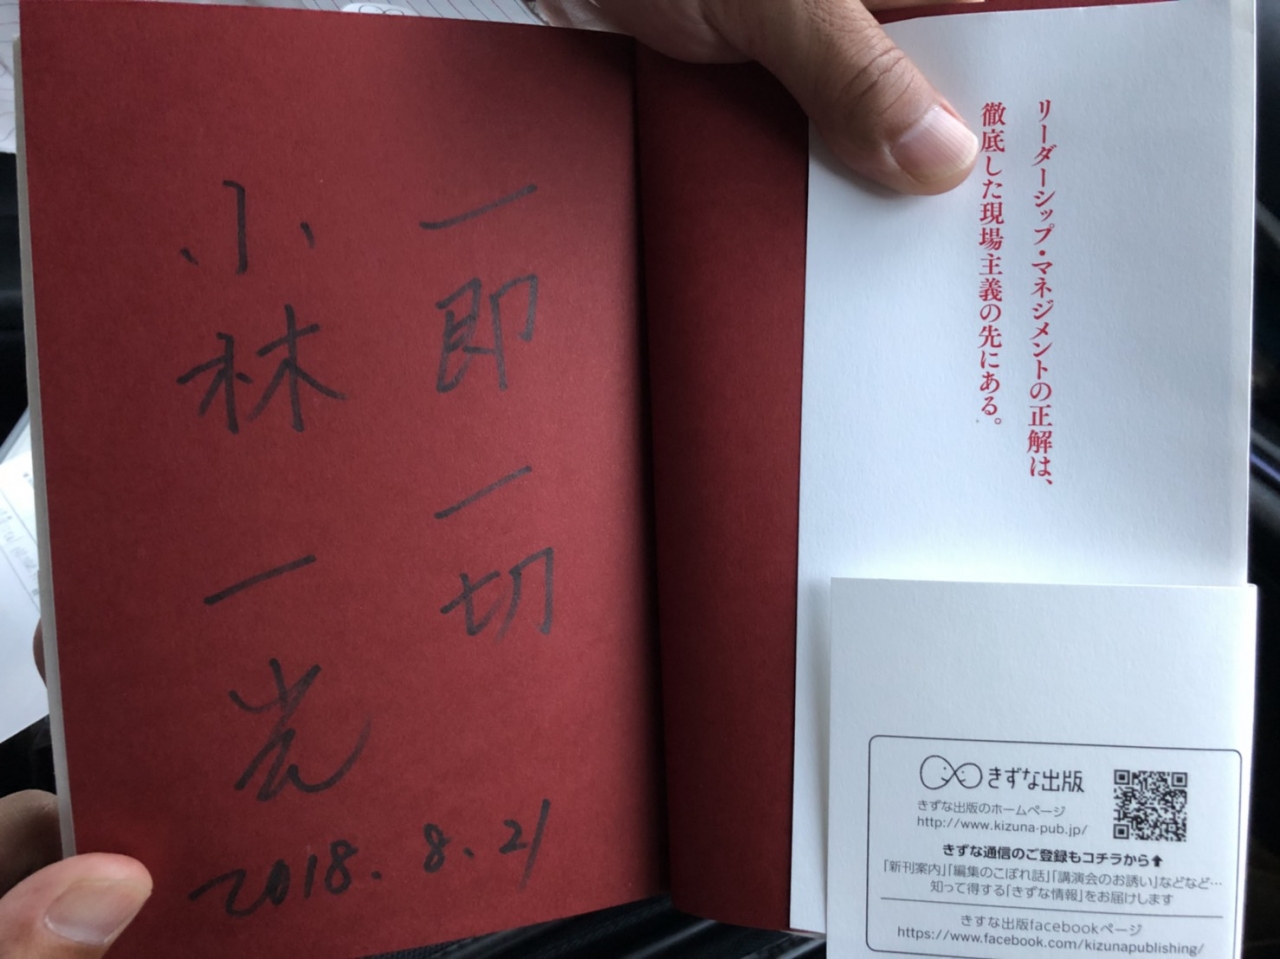 一即一切
小林一光
2018.8.21
リーダーシップ・マネジメントの正解は、
徹底した現場主義の先にある。
きずな出版
きずな出版のホームページ
http://www.kizuna-pub.jp/
きずな通信のご登録もコチラから⬆
「新刊案内」「編集のこぼれ話」「講演会のお誘い」などなど…
知って得する「きずな情報」をお届けします
きずな出版facebookページ
https://www.facebook.com/kizunapublishing/